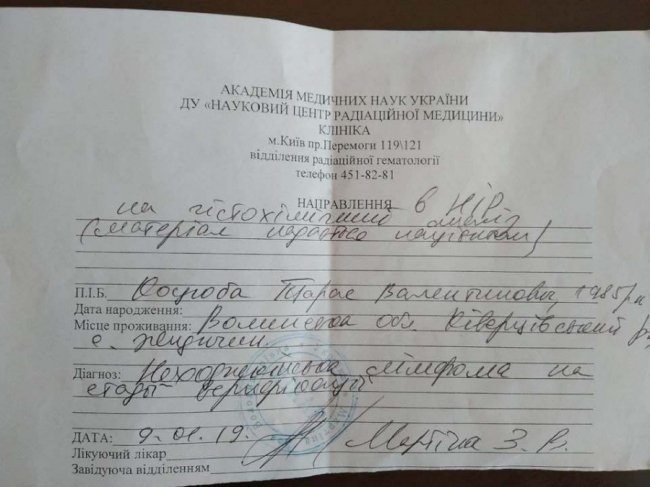 АКАДЕМІЯ МЕДИЧНИХ НАУК УКРАЇНИ
ДУ «НАУКОВИЙ ЦЕНТР РАДІАЦІЙНОЇ МЕДИЦИНИ»
КЛІНІКА
м.Київ пр.Перемоги 119\121
відділення радіаційної гематології
телефон 451-82-81
НАПРАВЛЕННЯ в НІР
на гістохімічний аналіз
(матеріал надається пацієнтом)
П.І.Б. Тарас Валентинович, 1985р.н
Дата народження:
Місце проживання: Волинська обл. Ківерцівський р
с. Жидичин
Діагноз: Неходжкінська лімфома на
стадії верифікації
ДАТА: 9.01.19.
Лікуючий лікар Мартіна З.В.
Завідуюча відділенням